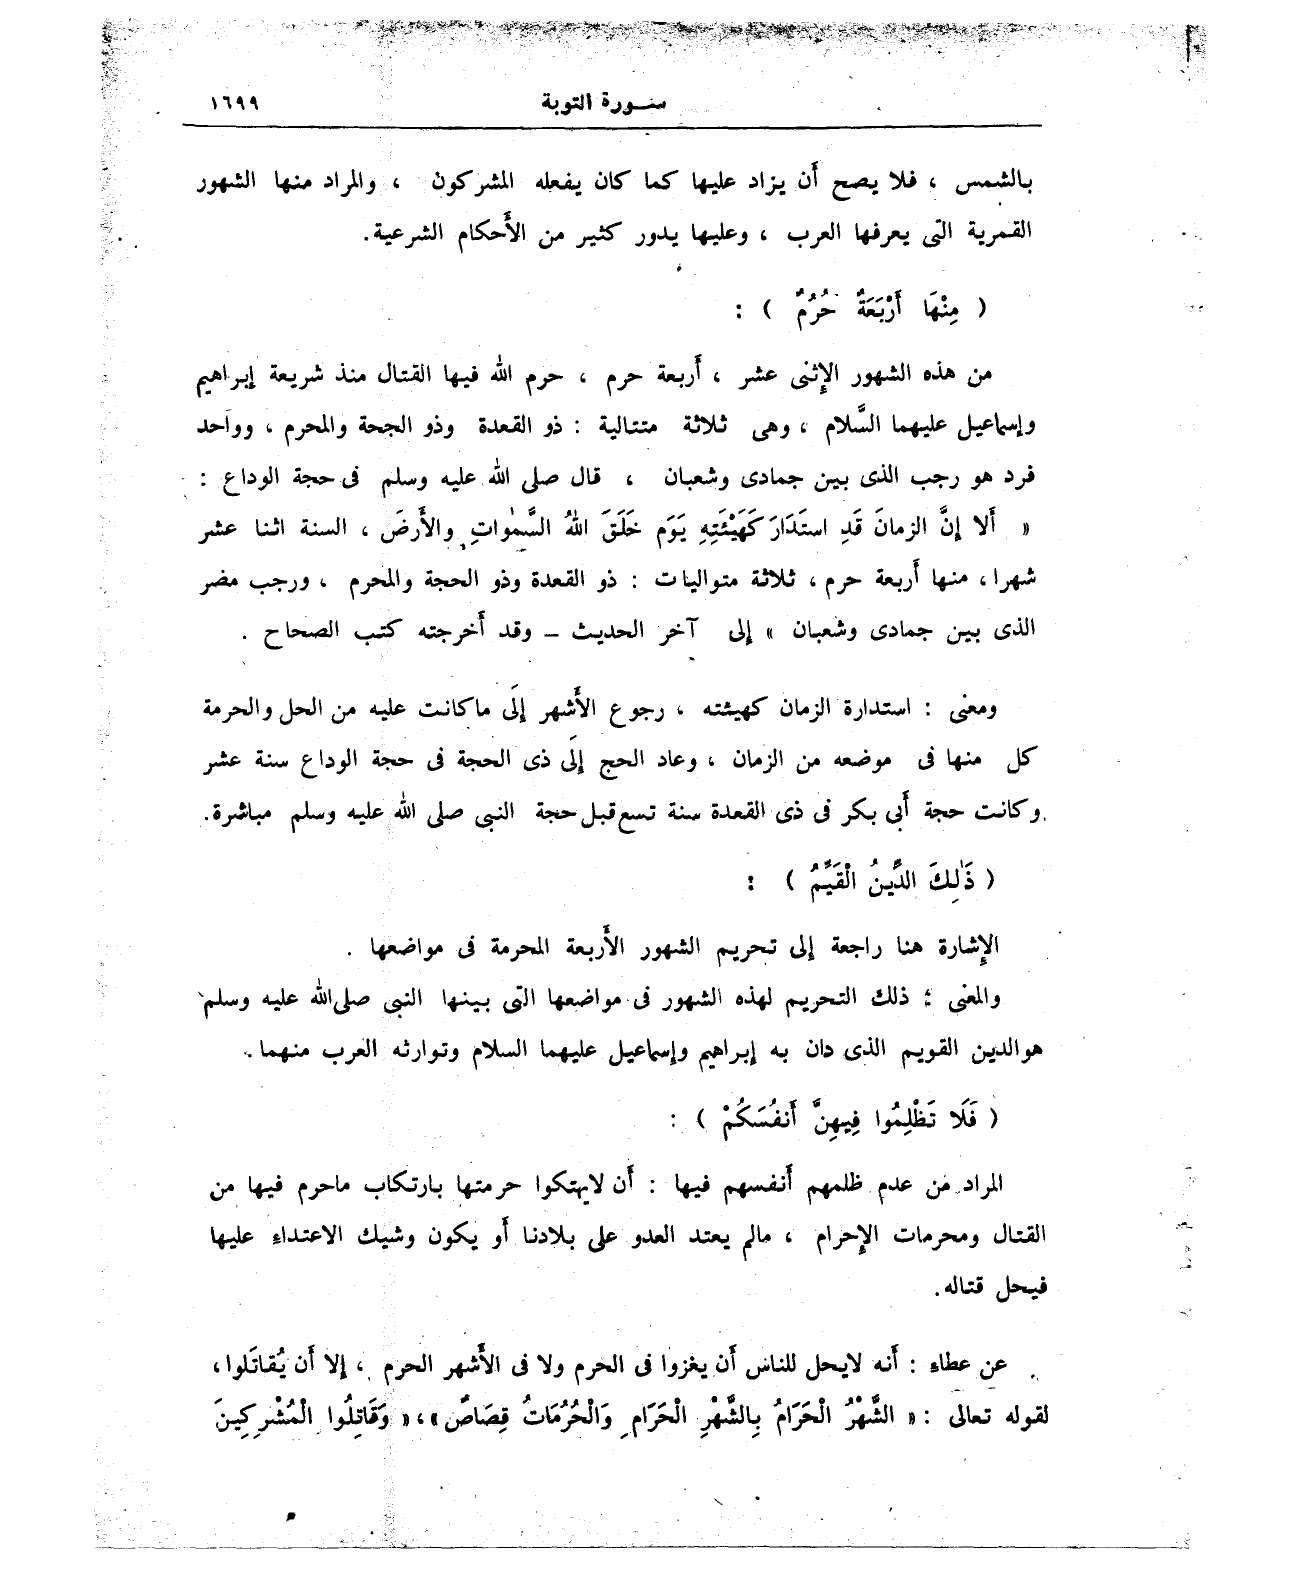 سورة التوبة ١٦٩٩
بالشمس ، فلا يصح أَن يزاد عليها كما كان يفعله المشركون ، والمراد منها الشهور
القمرية التى يعرفها العرب ، وعليها يدور كثير من الأَحكام الشرعية.
( مِنْهَا أَرْبَعَةٌ حُرُمٌ ) :
من هذه الشهور الإِثنى عشر ، أَربعة حرم ، حرم الله فيها القتال منذ شريعة إبراهيم
وإسماعيل عليهما السَّلام ، وهى ثلاثة متتالية : ذو القعدة وذو الحجة والمحرم ، وواحد
فرد هو رجب الذى بين جمادى وشعبان ، قال صلى الله عليه وسلم فى حجة الوداع :
« أَلا إِنَّ الزمانَ قَدِ استَدَارَ كَهَيْئَتِهِ يَوَم خَلَقَ اللهُ السَّمٰواتِ والأَرضَ ، السنة اثنا عشر
شهرا ، منها أَربعة حرم ، ثلاثة متواليات : ذو القعدة وذو الحجة والمحرم ، ورجب مضر
الذى بين جمادى وشعبان » إلى آخر الحديث ــ وقد أَخرجته كتب الصحاح .
ومعنى : استدارة الزمان كهيئته ، رجوع الأَشهر إلَى ماكانت عليه من الحل والحرمة
كل منها فى موضعه من الزمان ، وعاد الحج إلَى ذى الحجة فى حجة الوداع سنة عشر
وكانت حجة أَبى بكر فى ذى القعدة سنة تسع قبل حجة النبى صلى الله عليه وسلم مباشرة.
( ذَٰلِكَ الدِّينُ الْقَيِّمُ ) :
الإِشارة هنا راجعة إلى تحريم الشهور الأَربعة المحرمة فى مواضعها .
والمعنى : ذلك التحريم لهذه الشهور فى مواضعها التى بينها النبى صلى الله عليه وسلم
هو الدين القويم الذى دان به إبراهيم وإسماعيل عليهما السلام وتوارثه العرب منهما .
( فَلَا تَظْلِمُوا فِيهِنَّ أَنفُسَكُمْ ) :
المراد من عدم ظلمهم أَنفسهم فيها : أَن لايهتكوا حرمتها بارتكاب ماحرم فيها من
القتال ومحرمات الإِحرام ، مالم يعتد العدو على بلادنا أَو يكون وشيك الاعتداءِ عليها
فيحل قتاله.
عن عطاءِ : أَنه لايحل للناس أَن يغزوا فى الحرم ولا فى الأَشهر الحرم ، إلا أَن يُقاتَلوا ،
لقوله تعالى : « الشَّهْرُ الْحَرَامُ بِالشَّهْرِ الْحَرَامِ وَالْحُرُمَاتُ قِصَاصٌ » ، « وَقَاتِلُوا الْمُشْرِكِينَ